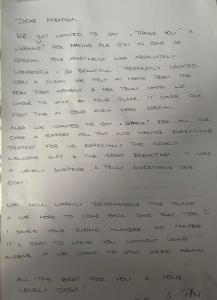 DEAR MIRANDA,
WE JUST WANTED TO SAY "THANK YOU" &
"GRACIE" FOR MAKING OUR STAY AS SO
SPECIAL. YOUR APARTMENT WAS ABSOLUTELY
WONDERFUL – SO BEAUTIFUL, PERFECTLY LOCATED,
& CLEAN. WE FELT AT HOME FROM THE
VERY FIRST MOMENT & ARE HAPPY WE
CHOSE TO STAY AT YOUR PLACE. IT MADE OUR
FIRST TIME IN EVEN MORE SPECIAL.
ALSO WE WANTED TO SAY "GRACIE" FOR ALL THE
CARE & EFFORT YOU PUT INTO MAKING EVERYTHING
PERFECT FOR US, ESPECIALLY THE LOVELY
WELCOME GIFT & THE GREAT BREAKFAST. IT WAS
A LOVELY SURPRISE & A
STAY!
WE WILL WARMLY RECOMMEND THE PLACE
& WE HOPE TO COME BACK ONE DAY TOO
I SAVED YOUR PHONE NUMBER SO MAYBE
IT'S OKAY TO WRITE YOU WITHOUT USING
AIRBNB IF WE WANT TO STAY HERE AGAIN
ALL THE BEST FOR YOU & YOUR
LOVELY DOGS!